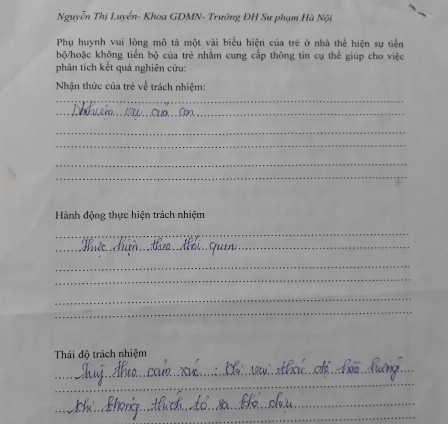 Nguyễn Thị Luyến- Khoa GDMN- Trường ĐH Sư phạm Hà Nội
Phụ huynh vui lòng mô tả một vài biểu hiện của trẻ ở nhà thể hiện sự tiến
bộ/hoặc không tiến bộ của trẻ nhằm cung cấp thông tin cụ thể giúp cho việc
phân tích kết quả nghiên cứu:
Nhận thức của trẻ về trách nhiệm:
Nhiệm vụ của con
Hành động thực hiện trách nhiệm
Thực hiện theo thói quen
Thái độ trách nhiệm
Tuỳ theo cảm xúc : Khi vui thái độ hào hứng
khi không thích tỏ ra khó chịu